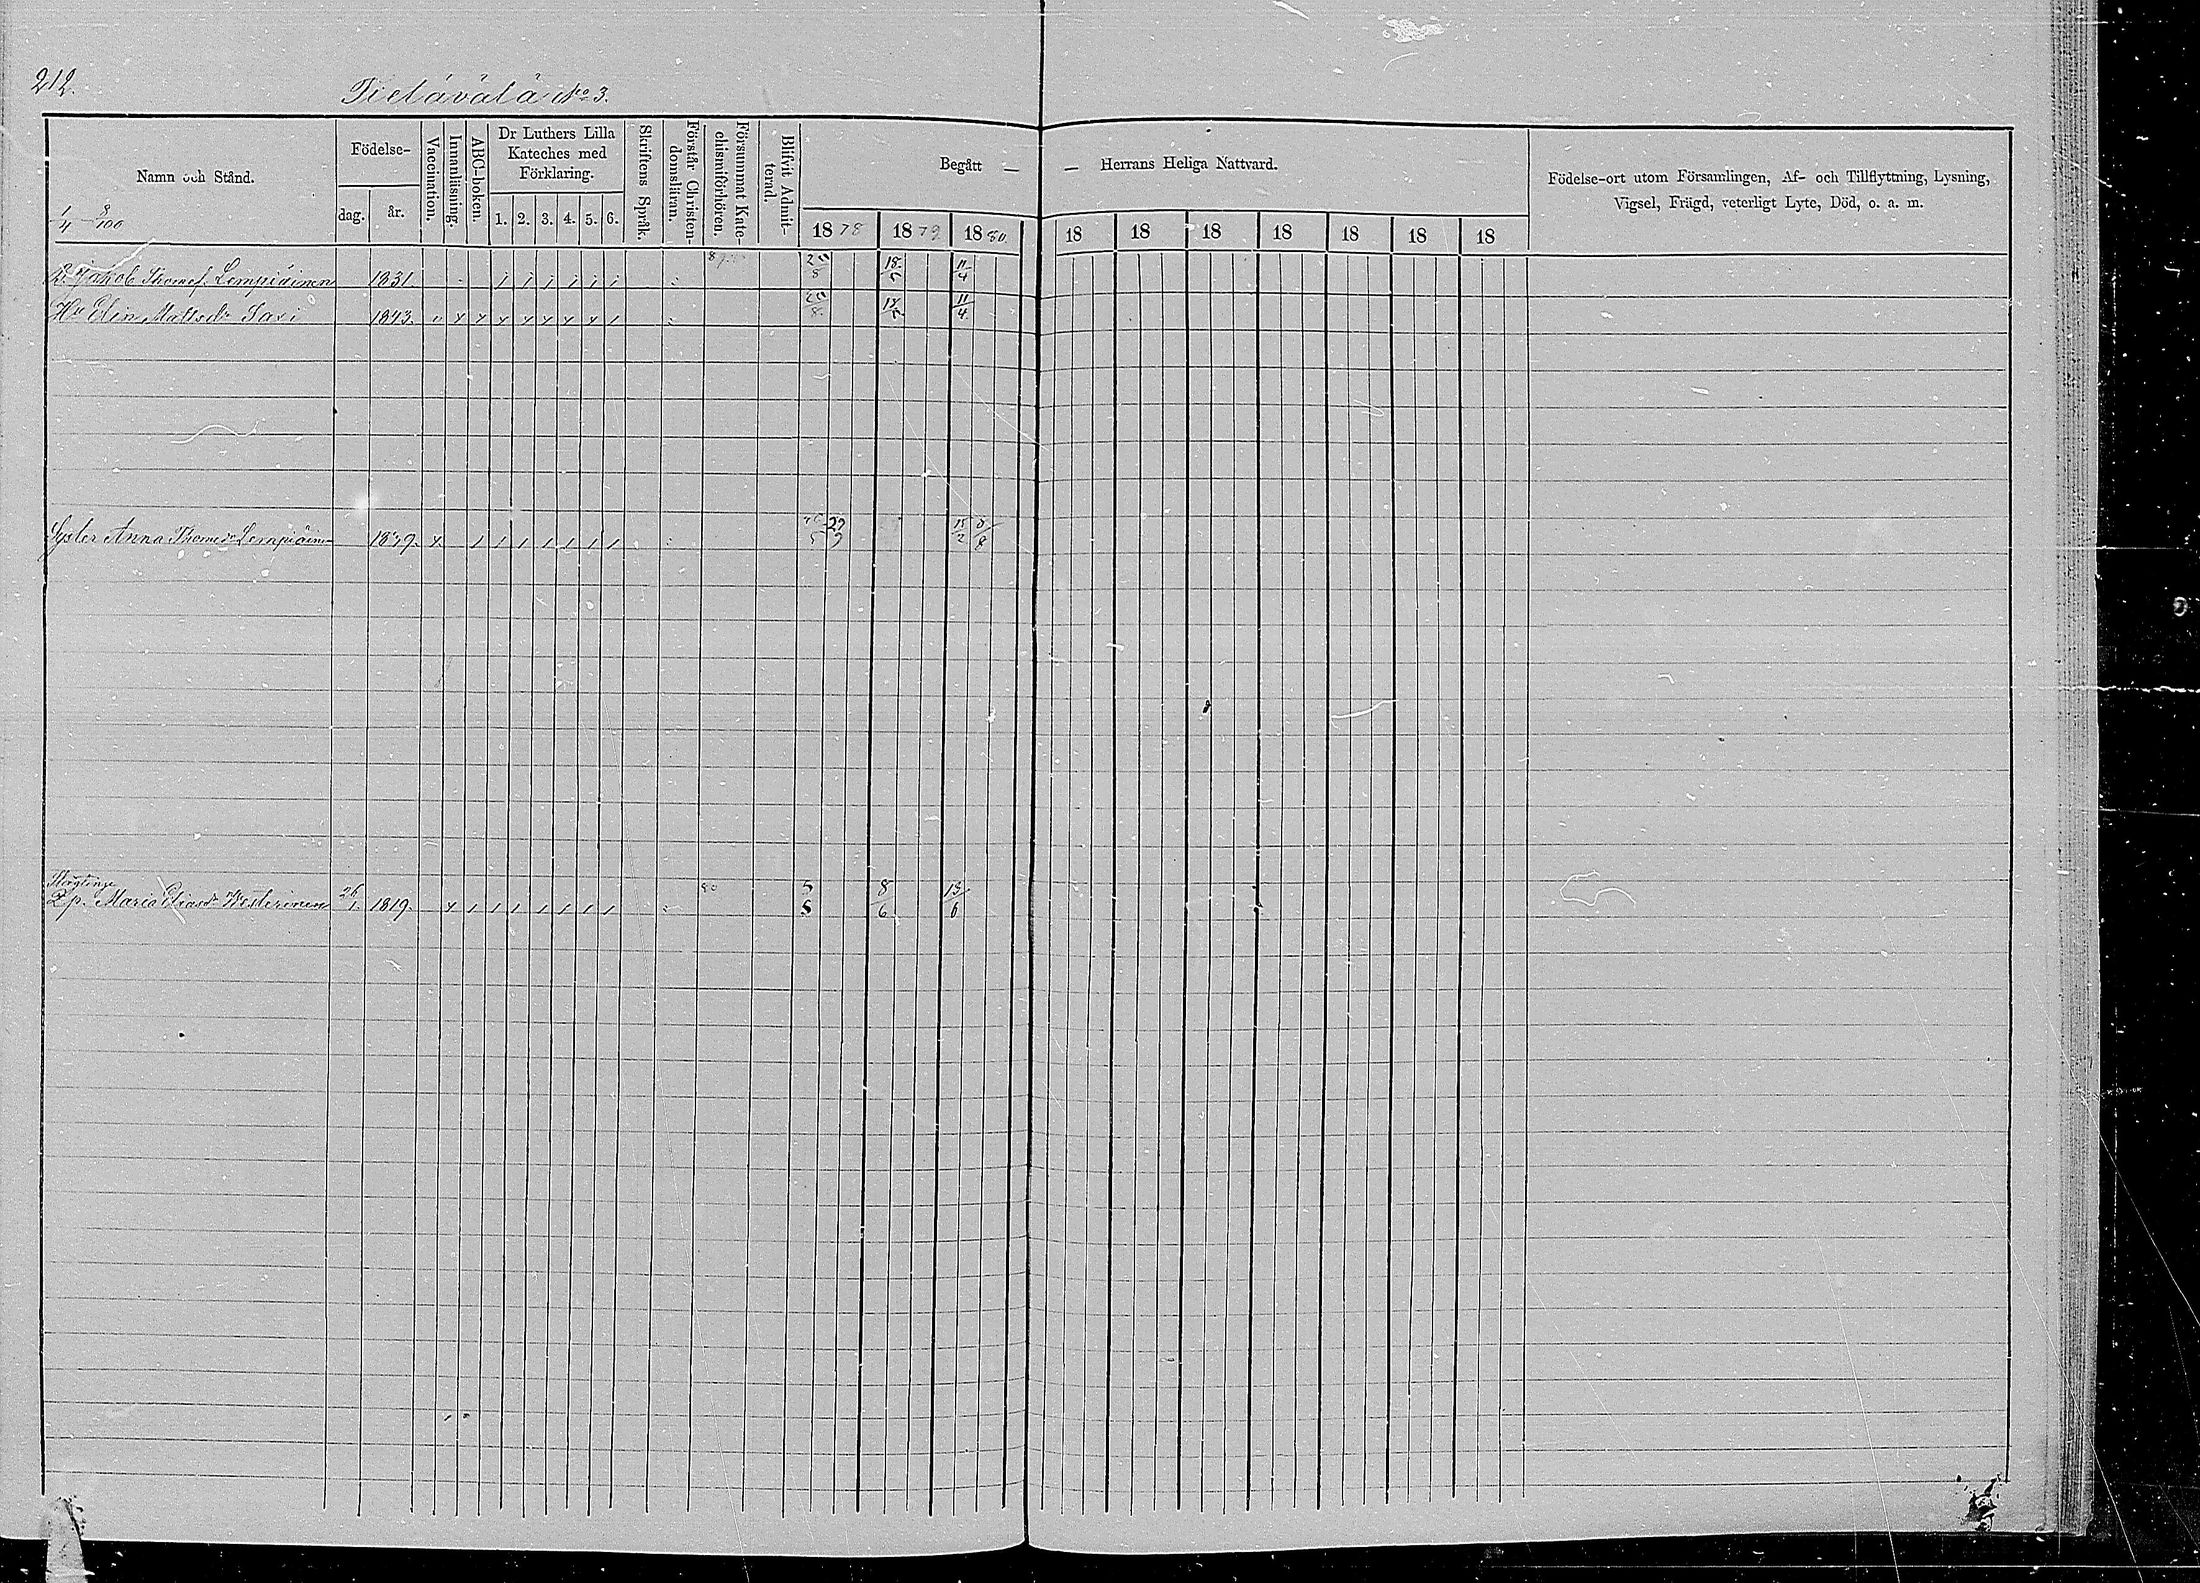 212.
Tietävälä No 3.
Namn och Stånd.
Födelse-
dag.
år.
Vaccination.
Innanläsning.
ABC-boken.
Dr Luthers Lilla
Kateches med
Förklaring.
1. 2. 3. 4. 5. 6.
Skriftens Språk.
Förstår Christen-
domsläran.
Försummat Kate-
chismiförhören.
Blifvit Admit-
terad.
Begått —
— Herrans Heliga Nattvard.
Födelse-ort utom Församlingen, Af- och Tillflyttning, Lysning,
Vigsel, Frägd, veterligt Lyte, Död, o. a. m.
1878 1879 1880 18 18 18 18 18 18 18
B. Jakob Thomasf. Lempiäinen 1831 20/8 18/5 11/4
Hu Elin Mattsdr Saxi 1843. 20/8 18/5 11/4
Syster Anna Thomasdr Lempiäinen 15/2
Lp. Maria Eliasdr Westerinen 26/1. 1819. 5/5 8/6 13/6